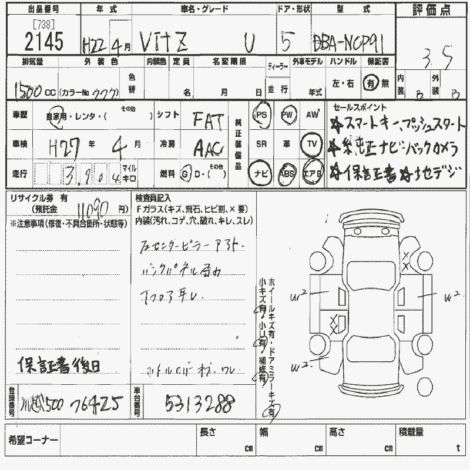 出品番号 年式 車名・グレード ドア・形状 型式 評価点
[738]
2145 H22年4月 Vitz U 5 DBA-NCP91 3.5
排気量 外装色 内装色 定員 名変期限 ディーラー 外車モデル ハンドル 保証書 内装 外装
1500cc (カラーNo. 777) 色替 名 月 日 並行 年 左・右 有 無 B B
車歴 自家用・レンタ・(その他) シフト FAT 純正装備品 PS PW AW セールスポイント
☆スマートキー、プッシュスタート
車検 H27年4月 冷房 AAC SR 革 TV
☆純正ナビ バックカメラ
走行 3,904 マイル キロ 燃料 G・D・(その他) ナビ ABS エアB
☆保証書☆地デジ
リサイクル券 有 (預託金 11090円)
※注意事項(修復・不具合箇所・状態等)
検査員記入
Fガラス(キズ、飛石、ヒビ割、×要)
内装(汚れ、コゲ、穴、破れ、キレ、スレ)
右センターピラーアト
バックパネル歪み
小キズ有・小U有・補修有
ホイールキズ有・ドアミラーキズ有
W2 W2
W2
保証書後日
登録番号 川越500 76425 車台番号 5313288
希望コーナー 長さ cm 幅 cm 高さ cm 積載量 t